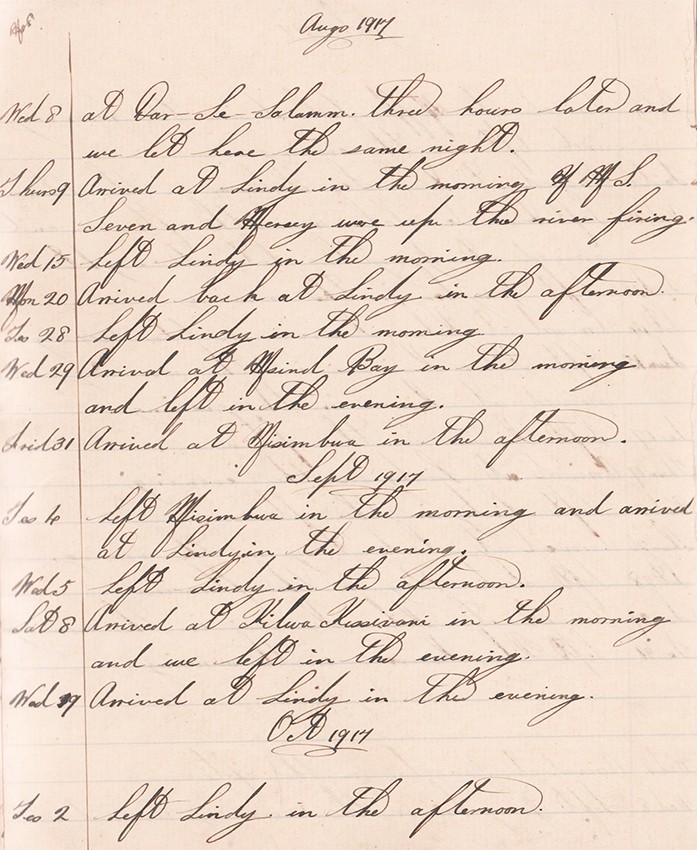 Augo 1917
Wed 8 at Dar-Se-Salamm. three hours later and
we left here the same night.
Thurs 9 Arrived at Lindy in the morning H M S.
Seven and Mersey were up the river firing.
Wed 15 Left Lindy in the morning.
Mon 20 Arrived back at Lindy in the afternoon.
Tes 28 Left Lindy in the morning
Wed 29 Arrival at Msind Bay in the morning
and left in the evening.
Frid 31 Arrived at Msimbwa in the afternoon.
Sept 1917
Tes 4 Left Msimbwa in the morning and arrived
at Lindy in the evening.
Wed 5 Left Lindy in the afternoon.
Sat 8 Arrived at Kilwa Kissivani in the morning
and we left in the evening.
Wed 19 Arrived at Lindy in the evening.
Oct 1917
Tes 2 Left Lindy in the afternoon.